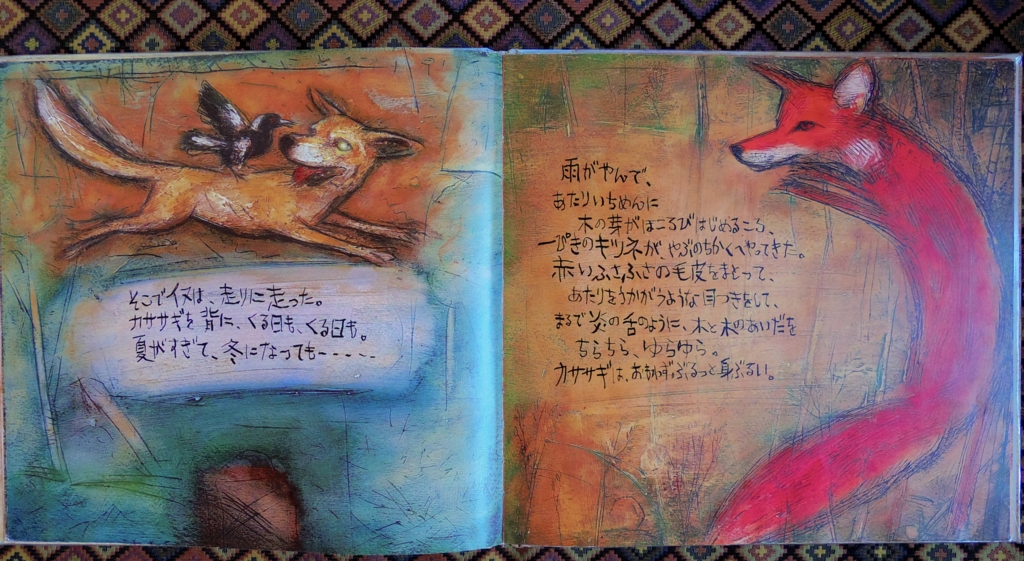 そこでイヌは、走りに走った。
カササギを背に、くる日も、くる日も。
夏がすぎて、冬になっても-----
雨がやんで、
あたりいちめんに
木の芽がほころびはじめるころ、
一ぴきのキツネが、やぶのちかくへやってきた。
赤いふさふさの毛皮をまとって、
あたりをうかがうような目つきをして、
まるで炎の舌のように、木と木のあいだを
ちらちら、ゆらゆら。
カササギは、おもわずぶるっと身ぶるい。